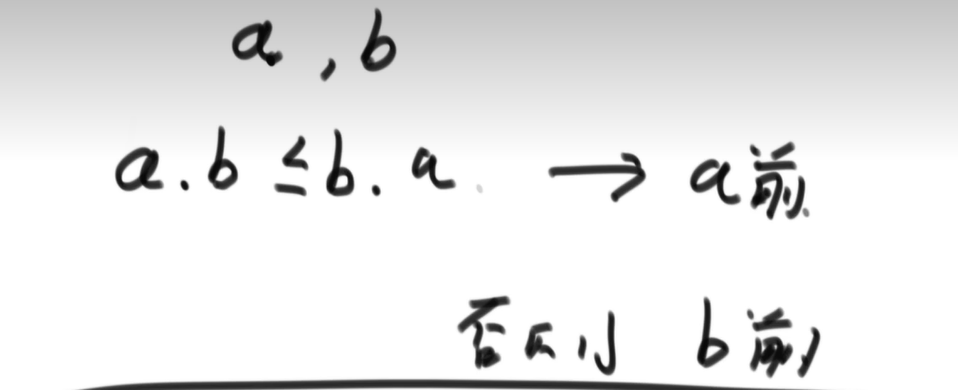 a , b
a . b ≤ b . a → a前
否则 b前